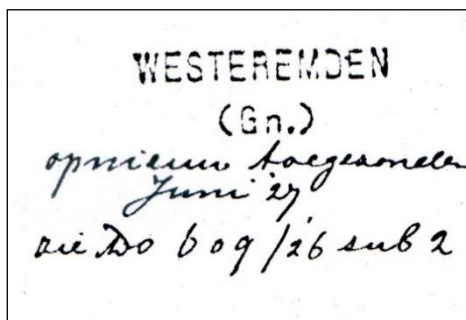 WESTEREMDEN
(Gn.)
opnieuw toegezonden
Juni '27
zie Do 609/'26 sub 2